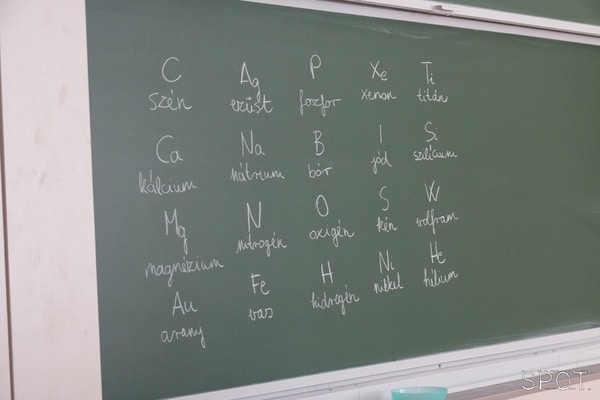 C Ag P Xe Ti
szén ezüst foszfor xenon titán
Ca Na B I Si
kálcium nátrium bór jód szilícium
Mg N O S W
magnézium nitrogén oxigén kén volfram
Au Fe H Ni He
arany vas hidrogén nikkel hélium
SPOT.